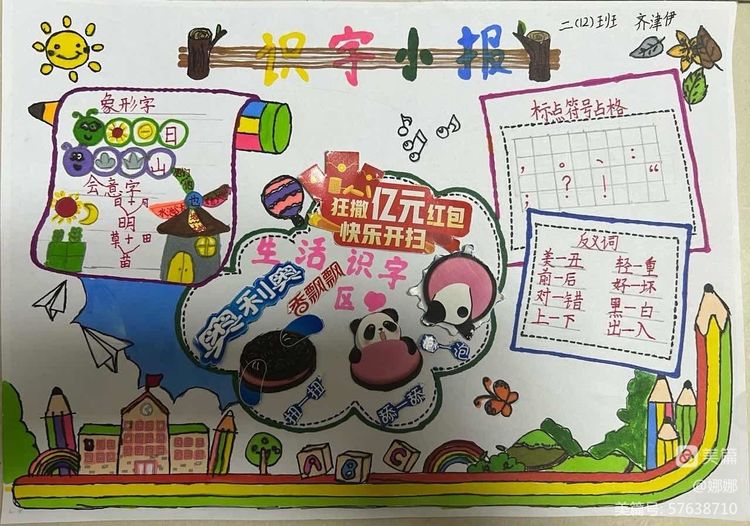 识字小报
二(12)班 齐津伊
象形字
日
山
会意字
日+月
明
草+田
苗
标点符号占格
， 。 、 ： “
； ？ ！
反义词
美—丑 轻—重
前—后 好—坏
对—错 黑—白
上—下 出—入
亿元红包
狂撒
快乐开扫
生活识字区
奥利奥
香飘飘
扭一扭
舔一舔
泡一泡
A B C
美篇
@娜娜
美篇号: 57638710